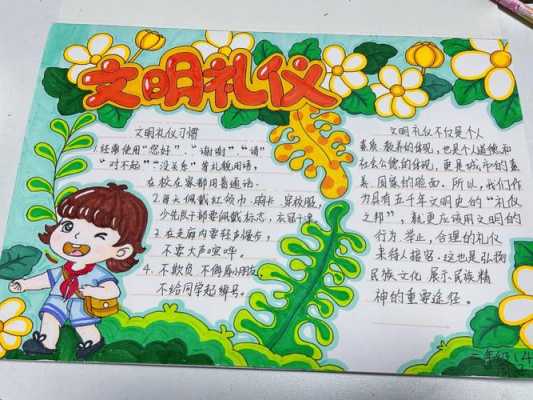 文明礼仪
文明礼仪习惯
1.经常使用“您好”、“谢谢”、“请”
“对不起”、“没关系”等礼貌用语。
在校在家都用普通话。
2.每天佩戴红领巾、胸卡、穿校服,
少先队干部要佩戴标志,衣冠干净。
3.在走廊内要轻声慢步,
不要大声喧哗。
4.不欺负、不侮辱小朋友,
不给同学起绰号。
文明礼仪不仅是个人
素质、教养的体现,也是个人道德和
社会公德的体现,更是城市的素
养、国家的脸面。所以,我们作
为具有五千年文明史的“礼仪
之邦”,就更应该用文明的
行为、举止,合理的礼仪
来待人接客。这也是弘扬
民族文化、展示民族精
神的重要途径。